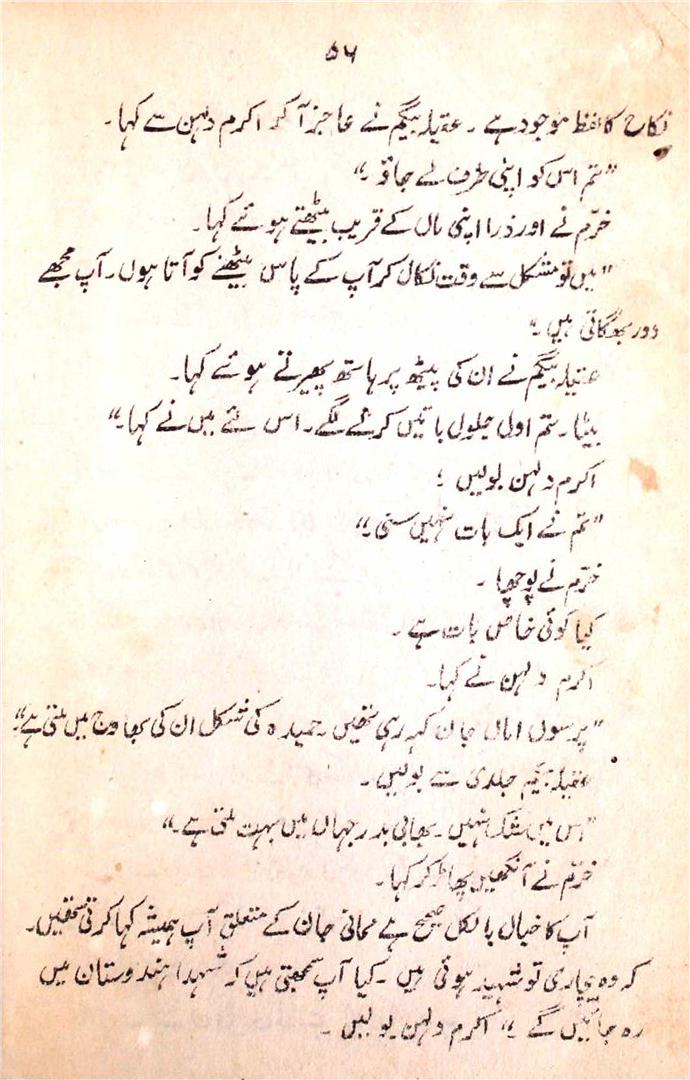 ۵۶
نکاح کا لفظ موجود ہے ۔ عقیلہ بیگم نے عاجز آ کر اکرم دلہن سے کہا۔
"تم اس کو اپنی طرف لے جاؤ ۔"
خرّم نے اور ذرا اپنی ماں کے قریب بیٹھتے ہوئے کہا۔
"میں تو مشکل سے وقت نکال کر آپ کے پاس بیٹھنے کو آتا ہوں۔ آپ مجھے
دور بھگاتی ہیں ۔"
عقیلہ بیگم نے ان کی پیٹھ پر ہاتھ پھیرتے ہوئے کہا۔
بیٹا۔ تم اول جلول باتیں کرنے لگے۔ اس لئے میں نے کہا۔"
اکرم دلہن بولیں ؛
"تم نے ایک بات نہیں سنی ۔"
خرّم نے پوچھا ۔
کیا کوئی خاص بات ہے ۔
اکرم دلہن نے کہا۔
"پرسوں اماں جان کہہ رہی تھیں ۔ حمیدہ کی شکل ان کی بھاوج میں ملتی ہے۔"
عقیلہ بیگم جلدی سے بولیں ۔
"اس میں شک نہیں ۔ بھابی بدر جہاں میں بہت ملتی ہے ۔"
خرّم نے آنکھیں پھاڑ کر کہا۔
آپ کا خیال بالکل صحیح ہے ممانی جان کے متعلق آپ ہمیشہ کہا کرتی تھیں۔
کہ وہ بیچاری تو شہید ہوئی ہیں ۔ کیا آپ سمجھتی ہیں کہ شہدا ہندوستان میں
رہ جائیں گے ۔" اکرم دلہن بولیں ۔